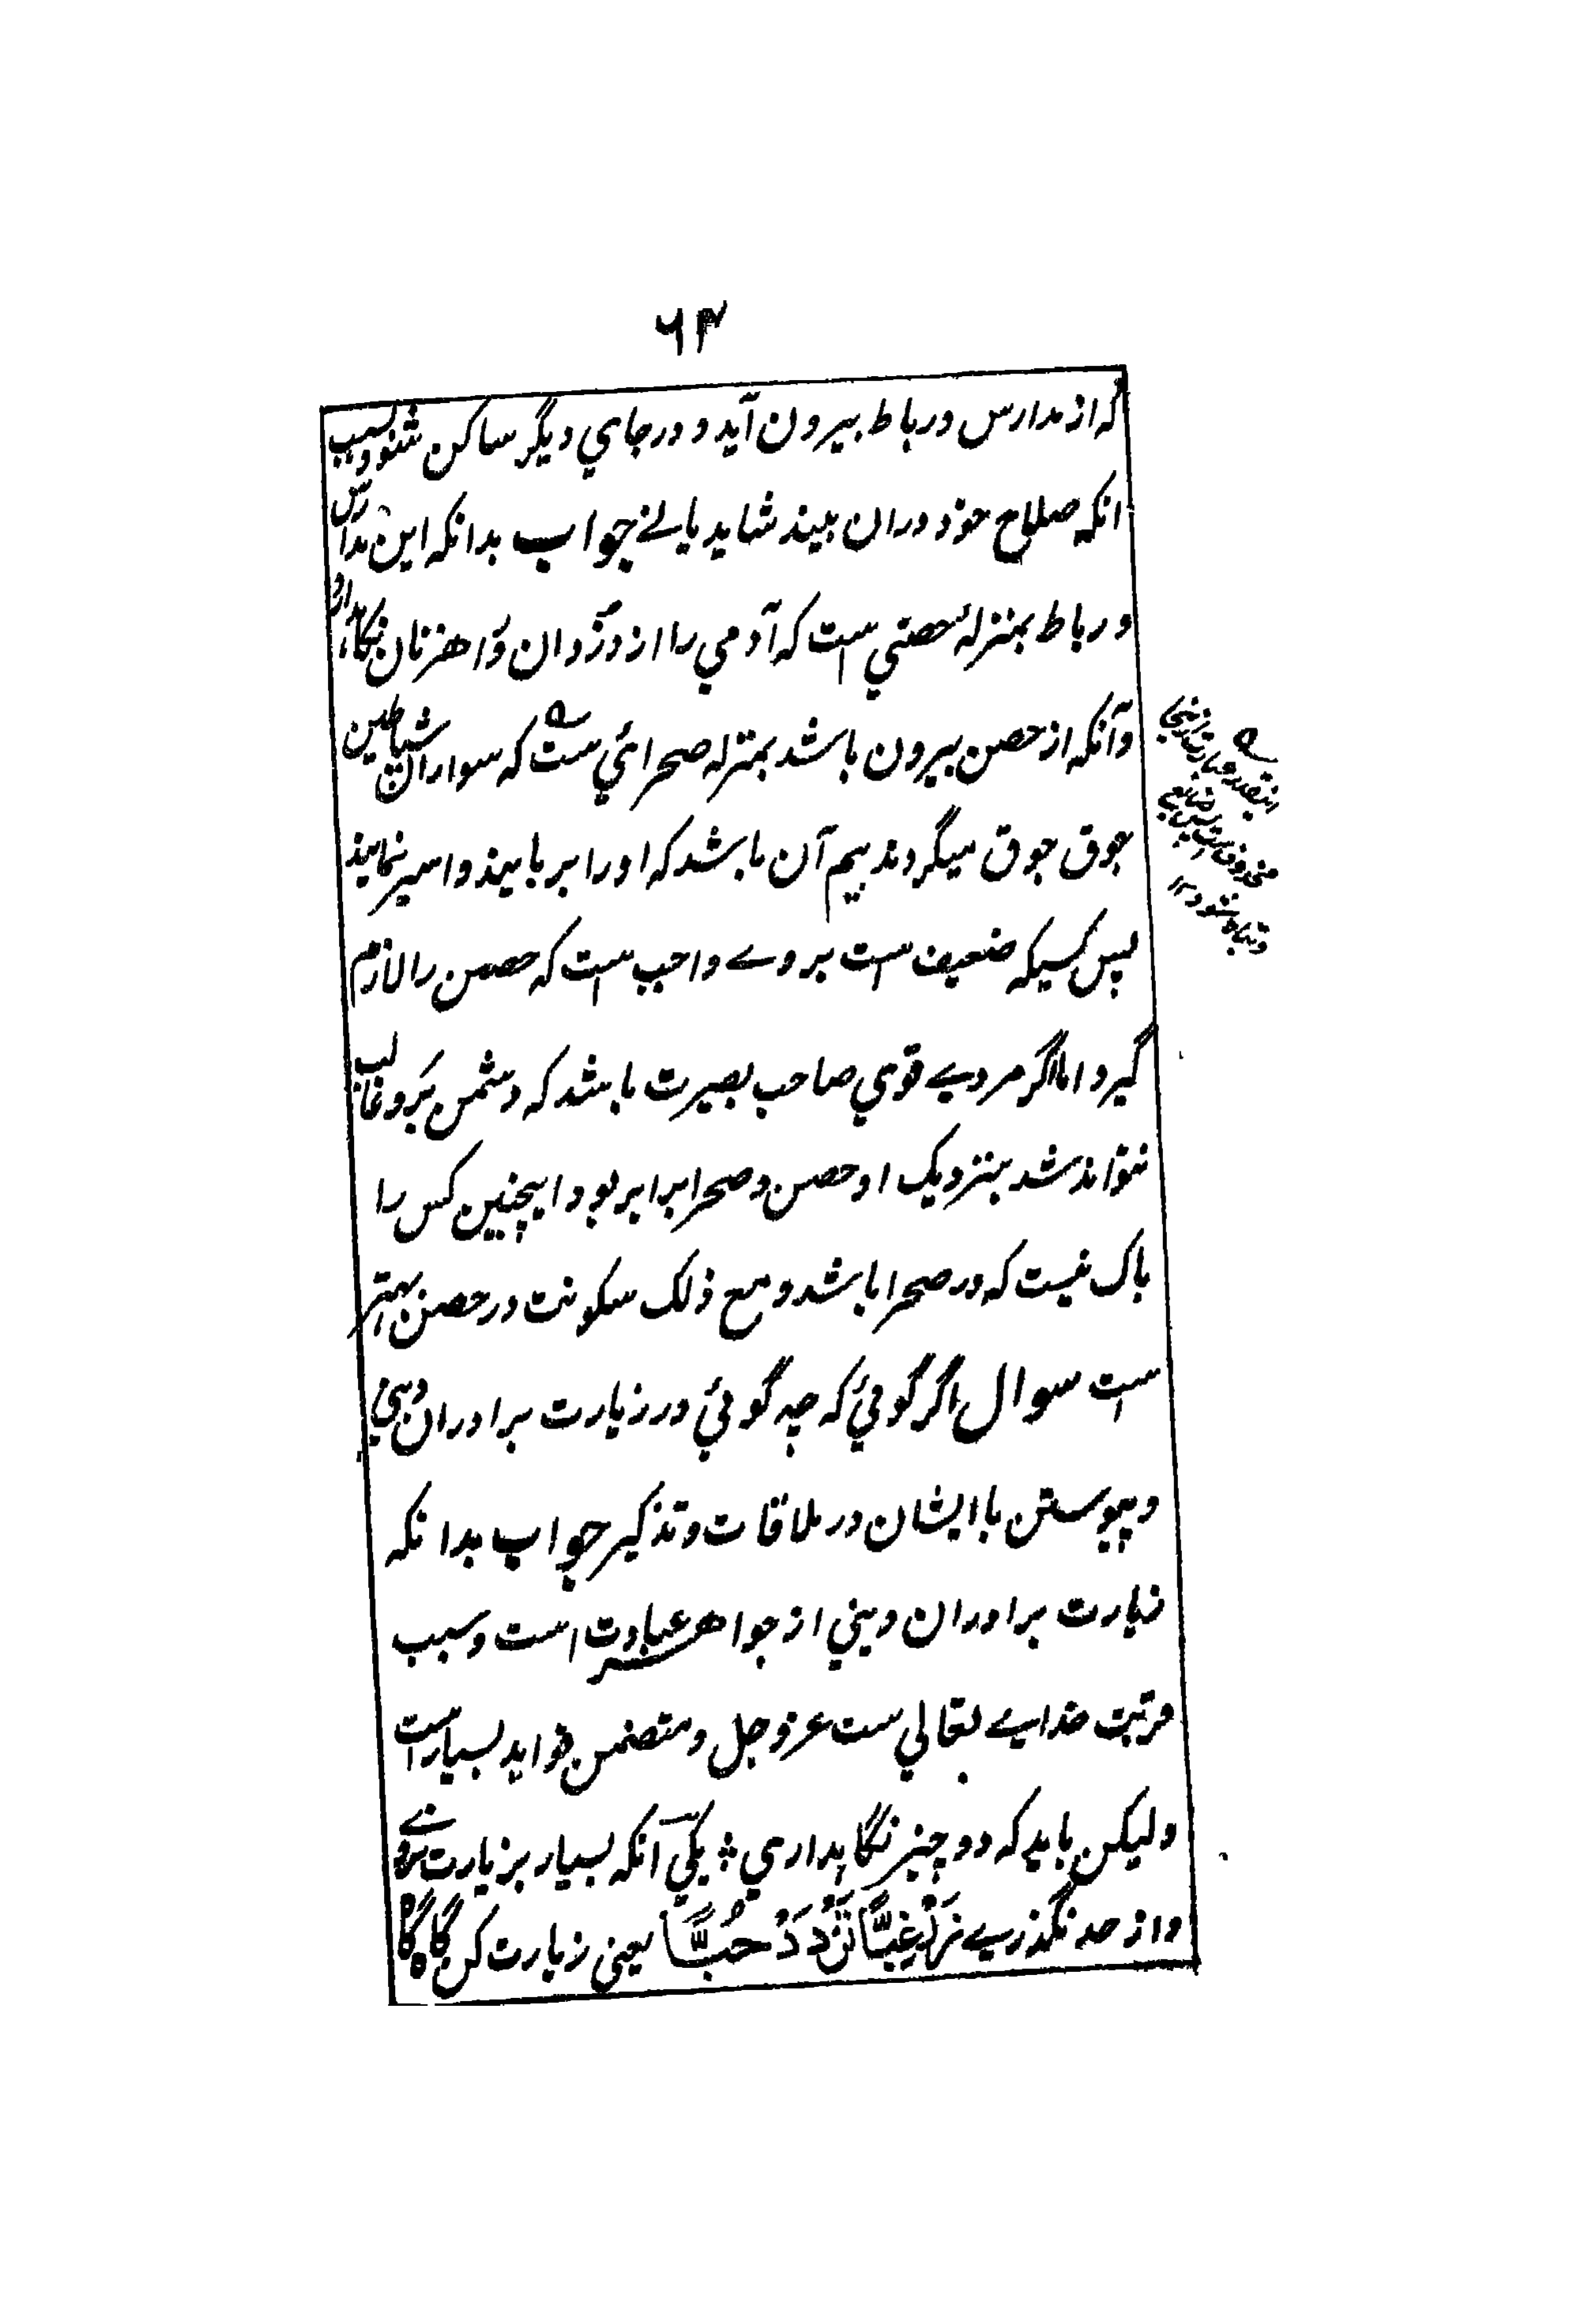 ۶۴
که از مدارس و رباط بیرون آید و در جاي دیگر ساکن شود بسبب
انکه صلاح خود دران بیند شاید یا نے جواب بدانکه این مدارس
و رباط بمنزلهٔ حصني است که آدمي را از دزدان و راهزنان نگاهدارد
و آنکه از حصن بیرون باشد بمنزله صحرائي ست که سواران شیاطین
جوق جوق میگردند بیم آن باشد که او را بربایند و اسیر نمایند
پس کسیکه ضعیف است بر وے واجب است که حصن را لازم
گیرد اما اگر مردے قوي صاحب بصیرت باشد که دشمن برو غالب
نتواند شد بنزدیک او حصن و صحرا برابر بود اینچنین کس را
باک نیست که در صحرا باشد و مع ذلک سکونت در حصن بهتر
است سوال اگر گوئي که چه گوئي در زیارت برادران دیني
و پیوستن با ایشان در ملاقات و تذکیر جواب بدانکه
زیارت برادران دیني از جواهر عبادت است و سبب
قربت خداے تعالي ست عز و جل و متضمن فواید بسیار است
ولیکن باید که دو چیز نگاهداري یکي آنکه بسیار بزیارت نروے
و از حد نگذرے زُرْ غِبًّا تَزْدَدْ حُبًّا یعني زیارت کن گاه گاه
اینقدر عبارت ازینجا
محذوف است
و تباه شود ۱۲